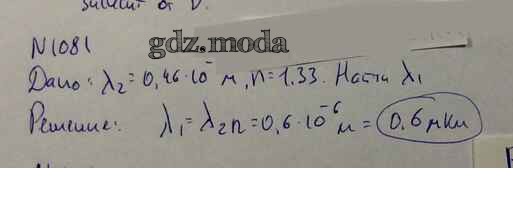 зависит от ν.
N1081
gdz.moda
Дано: λ₂ = 0,46·10⁻ м, n = 1.33. Найти λ₁
Решение: λ₁ = λ₂n = 0,6·10⁻⁶ м = 0,6 мкм